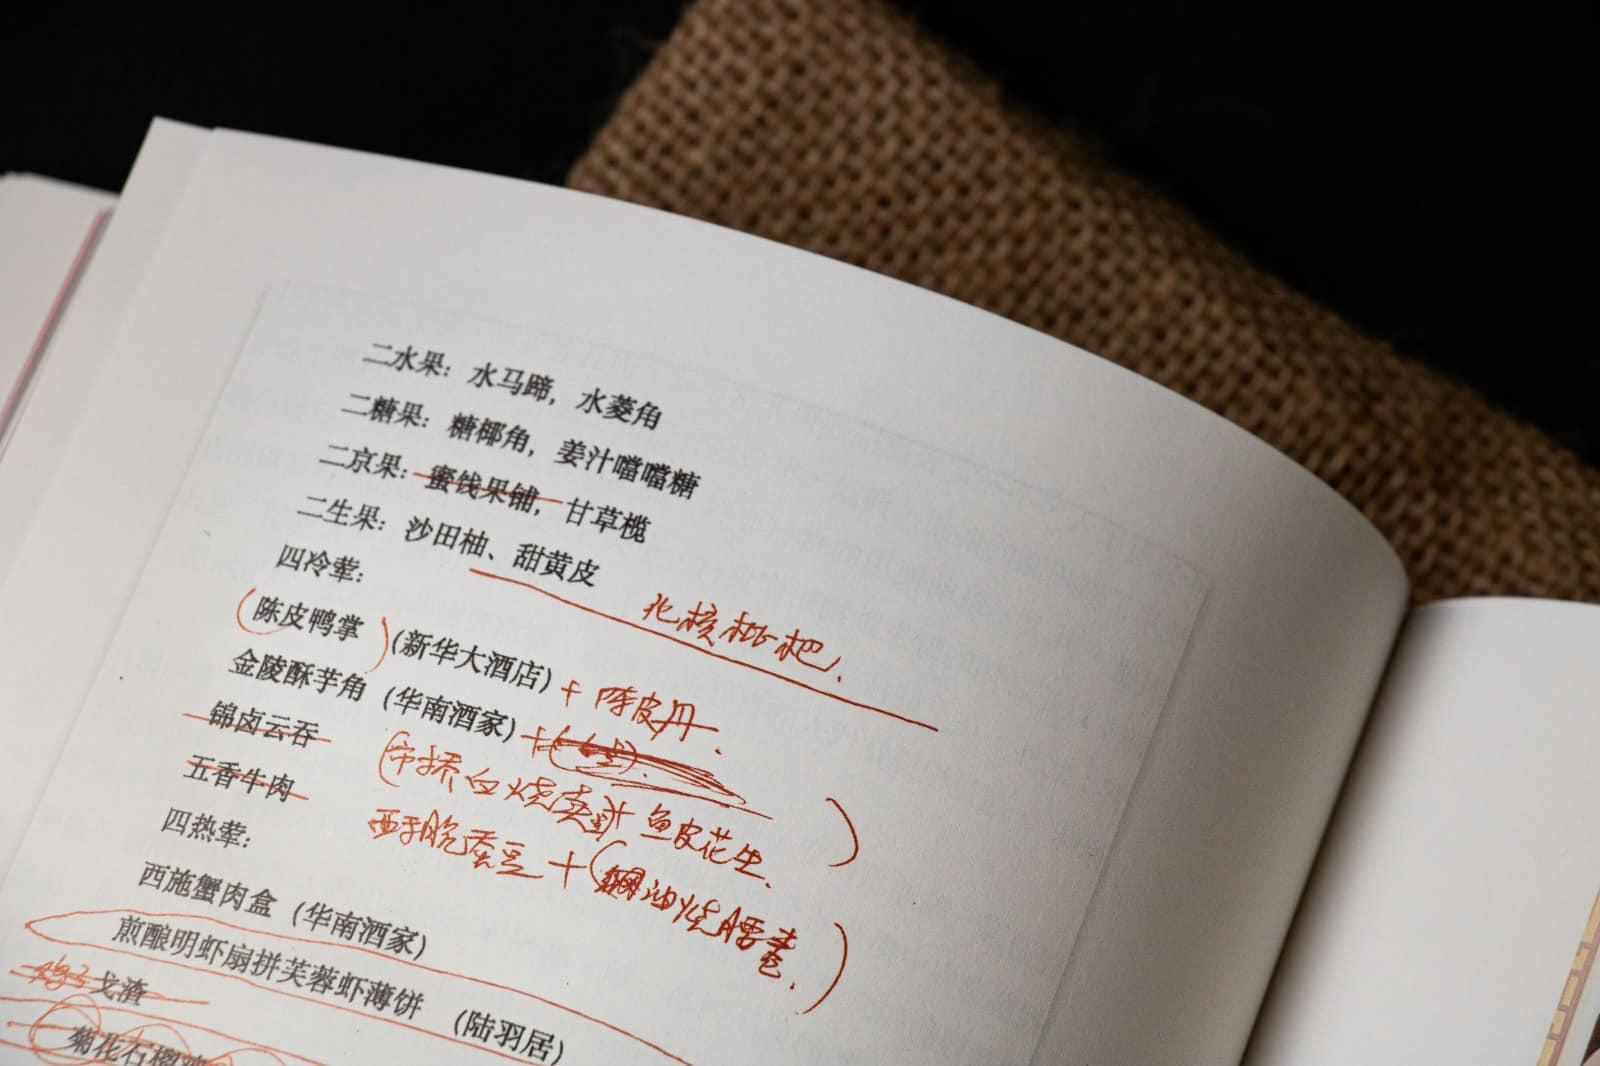 二水果：水马蹄，水菱角
二糖果：糖椰角，姜汁噹噹糖
二京果：蜜饯果铺，甘草榄
二生果：沙田柚、甜黄皮
化核枇杷.
四冷荤：
(陈皮鸭掌)（新华大酒店）+ 陈皮丹.
金陵酥芋角（华南酒家）+
锦卤云吞
烧卖 鱼皮花生.
五香牛肉
蚕豆 + (油烧腰
四热荤：
西施蟹肉盒（华南酒家）
煎酿明虾扇拼芙蓉虾薄饼（陆羽居）
戈渣
菊花石榴鸡